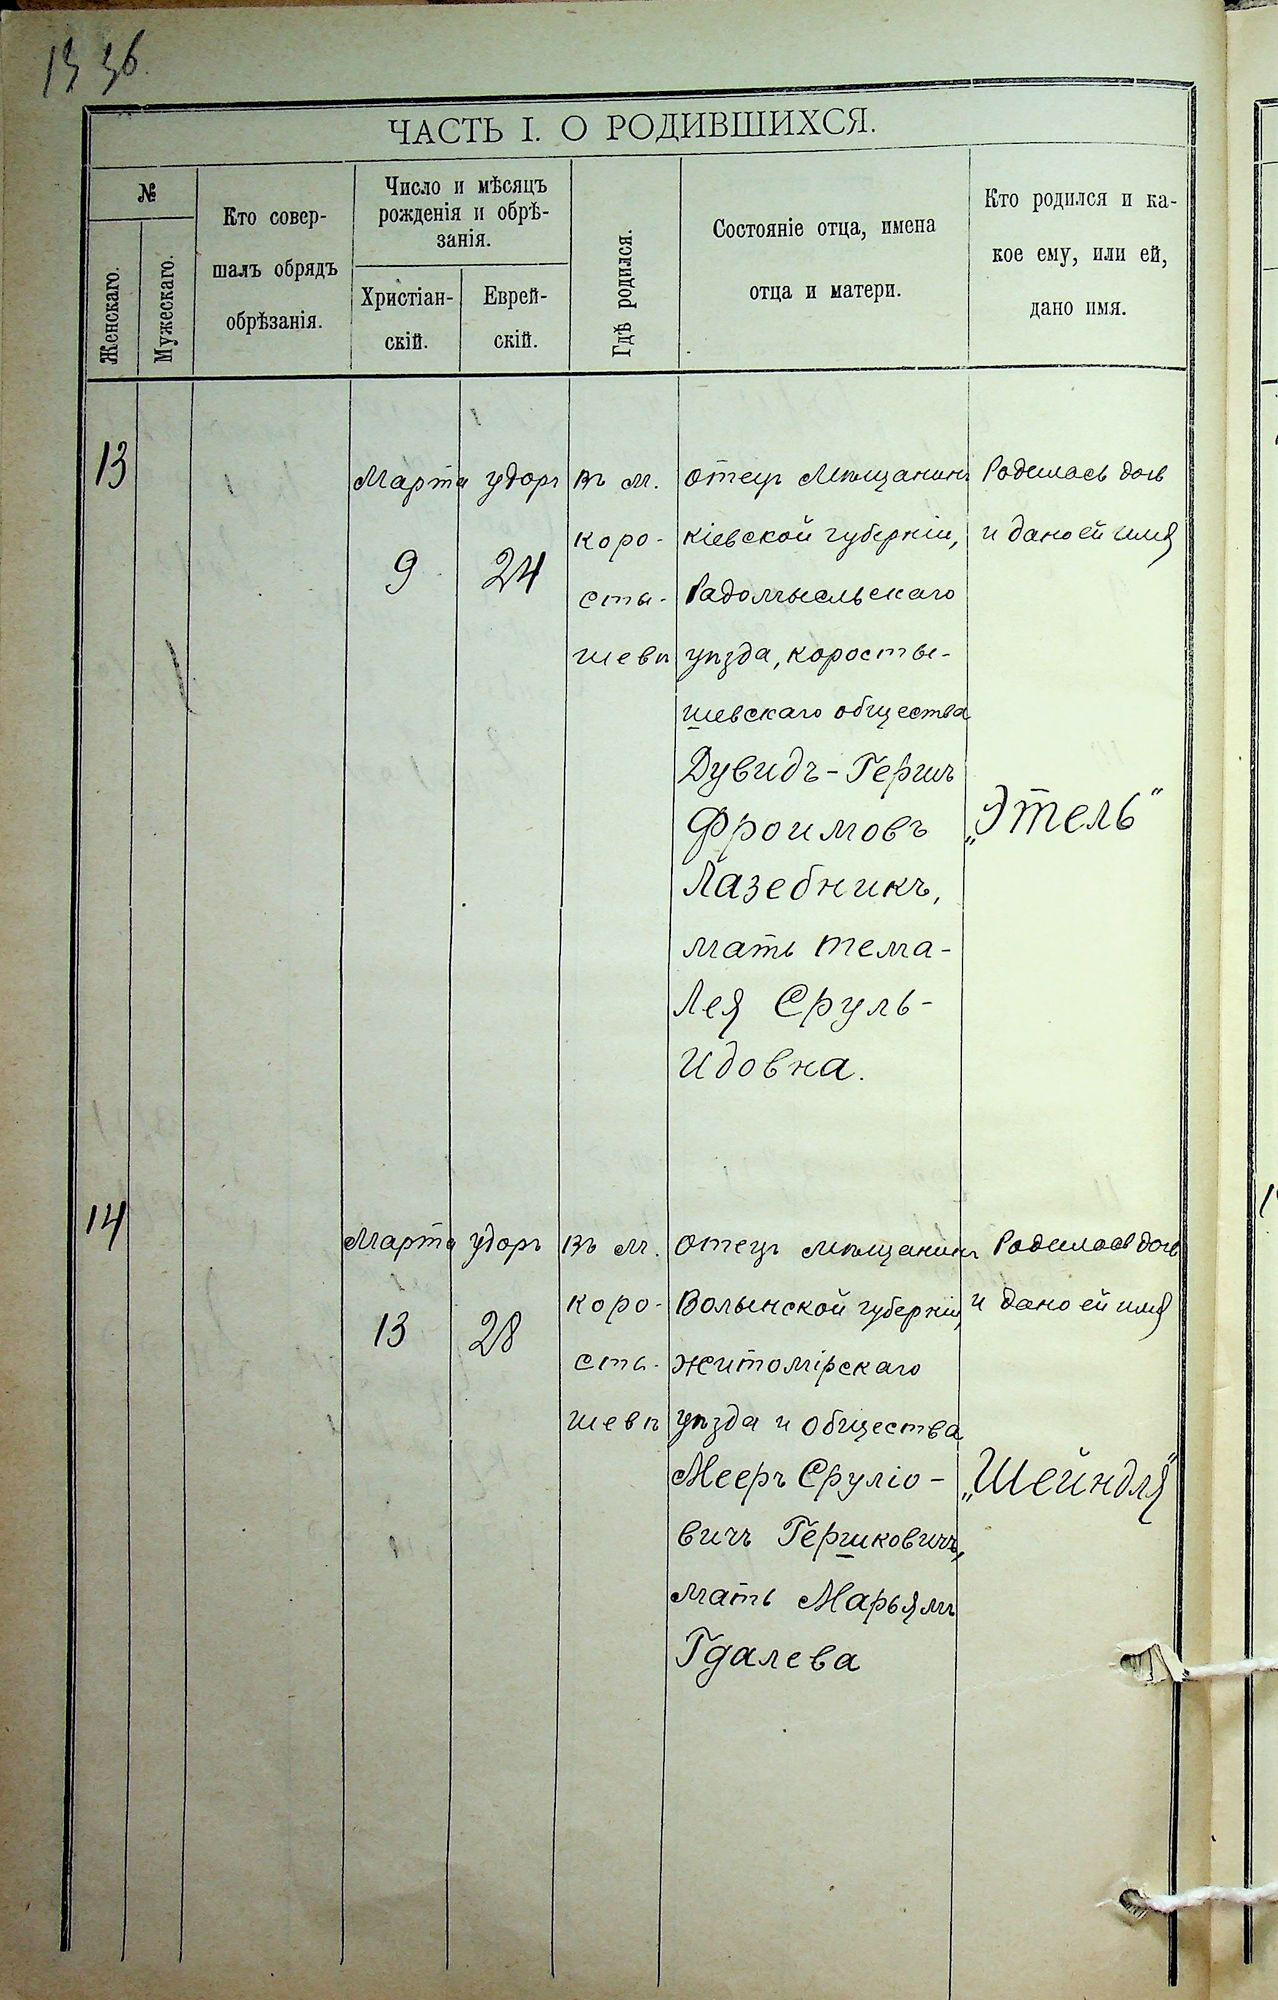 13 36.
ЧАСТЬ I. О РОДИВШИХСЯ.
№
Женскаго.
Мужескаго.
Кто совер-
шалъ обрядъ
обрѣзанія.
Число и мѣсяцъ
рожденія и обрѣ-
занія.
Христіан-
скій.
Еврей-
скій.
Гдѣ родился.
Состояніе отца, имена
отца и матери.
Кто родился и ка-
кое ему, или ей,
дано имя.
13
Марта
9
удоръ
24
Въ м.
коро-
сты-
шевѣ
отецъ Мѣщанинъ
Кіевской губерніи,
Радомысльскаго
уѣзда, коросты-
шевскаго общества
Дувидъ-Гершъ
Фроимовъ
Лазебникъ,
мать тема-
Лея Сруль-
Идовна.
Родилась дочь
и дано ей имя
„Этель"
14
Марта
13
удоръ
28
Въ м.
коро-
сты-
шевѣ
отецъ мѣщанинъ
Волынской губерніи,
житомірскаго
уѣзда и общества
Мееръ Сруліо-
вичъ Гершковичъ,
мать Марьямъ
Гдалева
Родилась дочь
и дано ей имя
„Шейндля"